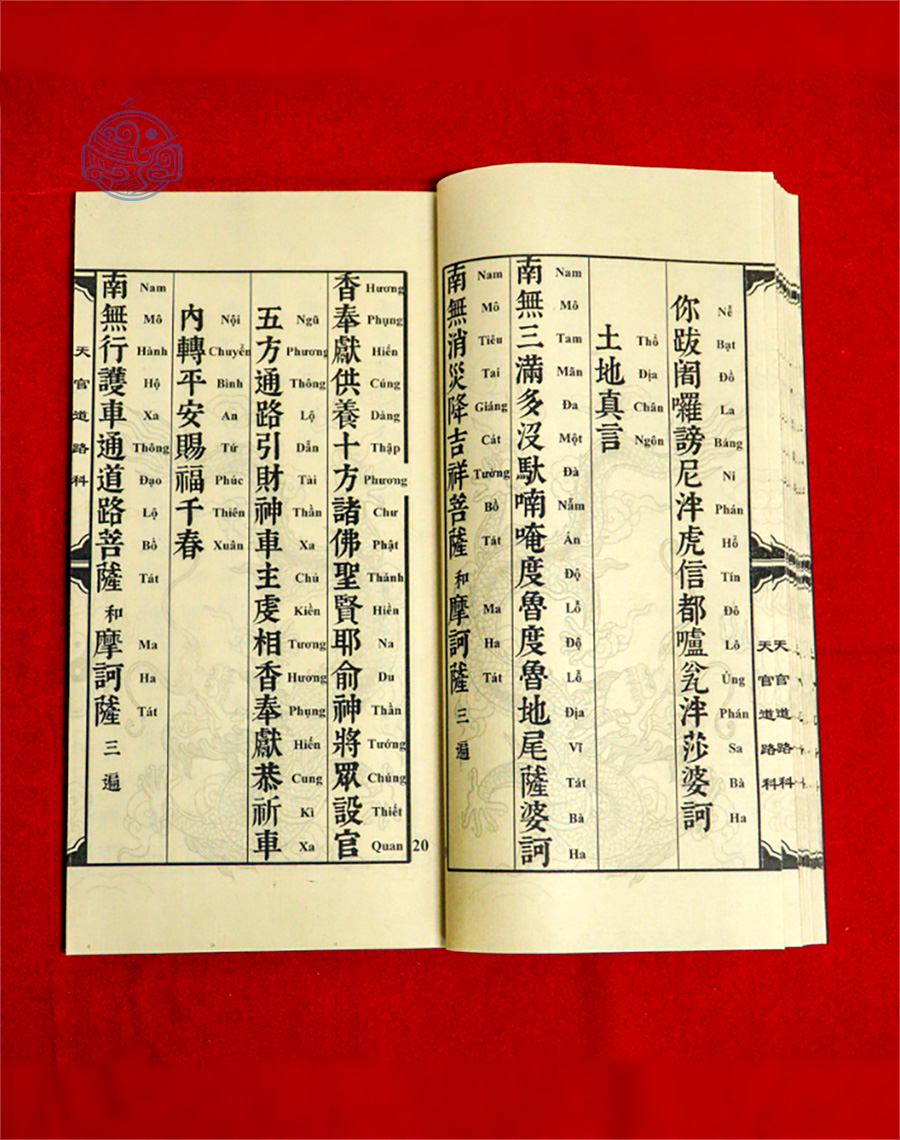 天官道路科
天官道路科
你跋闍囉謗尼泮虎信都嚧瓮泮莎婆訶
Nễ Bạt Đồ La Báng Ni Phán Hổ Tín Đô Lô Ủng Phán Sa Bà Ha
土地真言
Thổ Địa Chân Ngôn
南無三滿多沒馱喃唵度魯度魯地尾薩婆訶
Nam Mô Tam Mãn Đa Một Đà Nẫm Án Độ Lỗ Độ Lỗ Địa Vĩ Tát Bà Ha
南無消災降吉祥菩薩和摩訶薩三遍
Nam Mô Tiêu Tai Giáng Cát Tường Bồ Tát Ma Ha Tát
20
香奉獻供養十方諸佛聖賢耶俞神將眾設官
Hương Phụng Hiến Cúng Dàng Thập Phương Chư Phật Thánh Hiền Na Du Thần Tướng Chúng Thiết Quan
五方通路引財神車主虔相香奉獻恭祈車
Ngũ Phương Thông Lộ Dẫn Tài Thần Xa Chủ Kiền Tương Hương Phụng Hiến Cung Kì Xa
內轉平安賜福千春
Nội Chuyển Bình An Tứ Phúc Thiên Xuân
南無行護車通道路菩薩和摩訶薩三遍
Nam Mô Hành Hộ Xa Thông Đạo Lộ Bồ Tát Ma Ha Tát
天官道路科